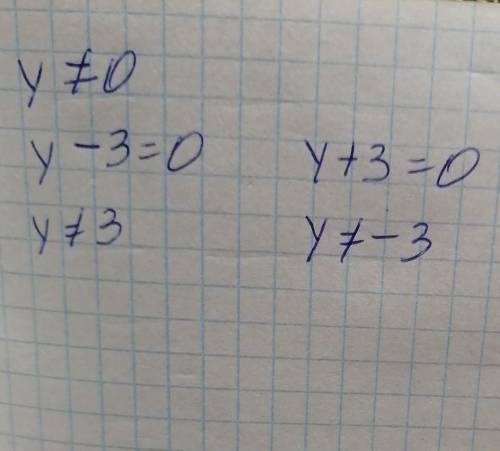 y ≠ 0
y - 3 = 0
y + 3 = 0
y ≠ 3
y ≠ - 3